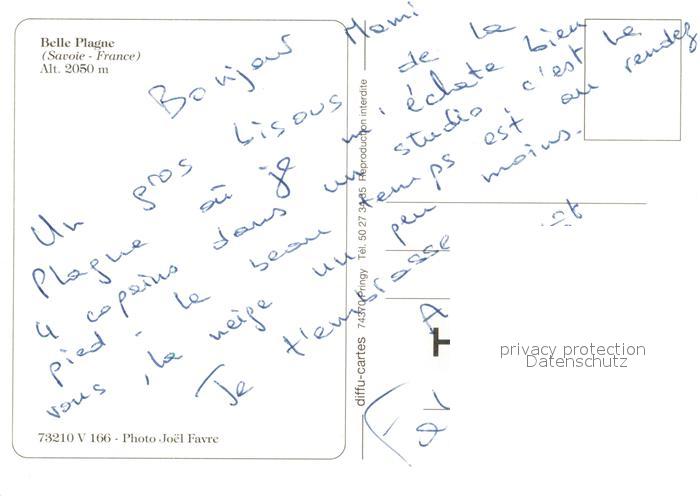 Belle Plagne
(Savoie - France)
Alt. 2050 m
Bonjour Mami
Un gros bisous de la
Plagne où je m'éclate bien
4 copains dans un studio c'est le
pied - le beau temps est au rendez
vous, la neige un peu moins.
Je t'embrasse
et
73210 V 166 - Photo Joël Favre
diffu-cartes 74370 Pringy Tél. 50 27 34 85 Reproduction interdite
privacy protection
Datenschutz